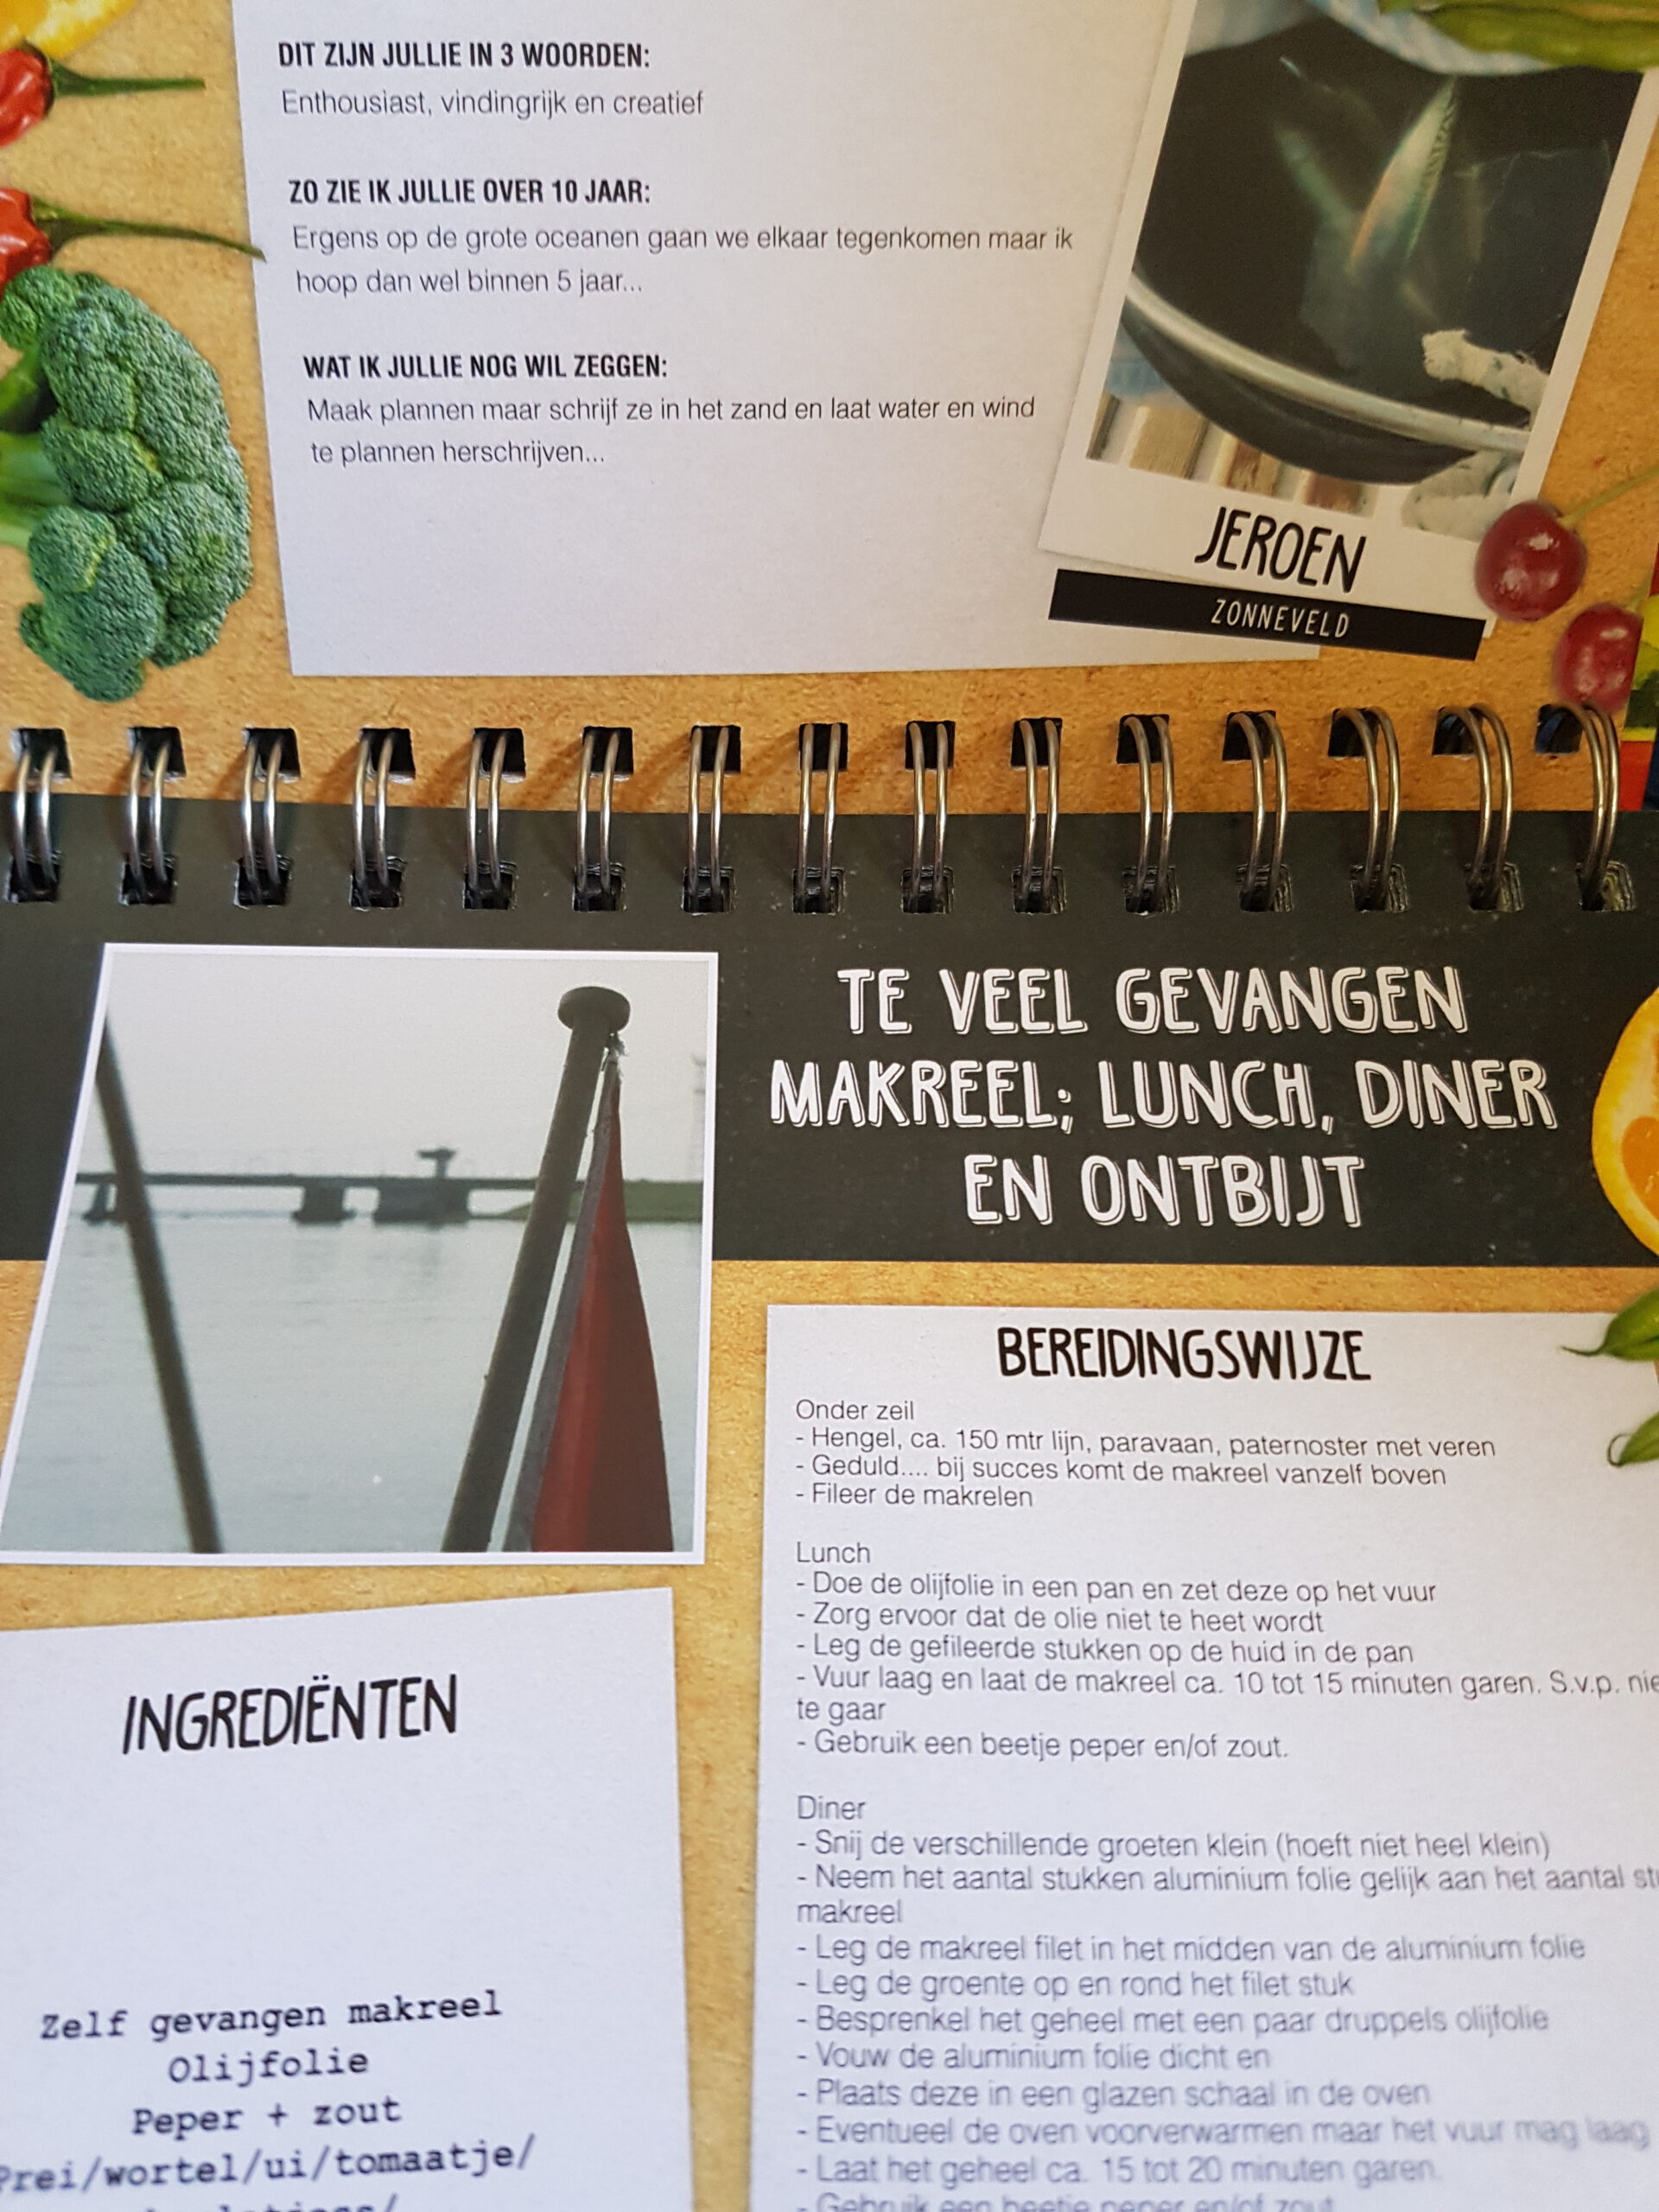 DIT ZIJN JULLIE IN 3 WOORDEN:
Enthousiast, vindingrijk en creatief
ZO ZIE IK JULLIE OVER 10 JAAR:
Ergens op de grote oceanen gaan we elkaar tegenkomen maar ik
hoop dan wel binnen 5 jaar...
WAT IK JULLIE NOG WIL ZEGGEN:
Maak plannen maar schrijf ze in het zand en laat water en wind
te plannen herschrijven...
JEROEN
ZONNEVELD
TE VEEL GEVANGEN
MAKREEL; LUNCH, DINER
EN ONTBIJT
BEREIDINGSWIJZE
Onder zeil
- Hengel, ca. 150 mtr lijn, paravaan, paternoster met veren
- Geduld.... bij succes komt de makreel vanzelf boven
- Fileer de makrelen
Lunch
- Doe de olijfolie in een pan en zet deze op het vuur
- Zorg ervoor dat de olie niet te heet wordt
- Leg de gefileerde stukken op de huid in de pan
- Vuur laag en laat de makreel ca. 10 tot 15 minuten garen. S.v.p. nie
te gaar
- Gebruik een beetje peper en/of zout.
Diner
- Snij de verschillende groeten klein (hoeft niet heel klein)
- Neem het aantal stukken aluminium folie gelijk aan het aantal
makreel
- Leg de makreel filet in het midden van de aluminium folie
- Leg de groente op en rond het filet stuk
- Besprenkel het geheel met een paar druppels olijfolie
- Vouw de aluminium folie dicht en
- Plaats deze in een glazen schaal in de oven
- Eventueel de oven voorverwarmen maar het vuur mag laag
- Laat het geheel ca. 15 tot 20 minuten garen.
- Gebruik een beetje peper en/of zout
INGREDIËNTEN
Zelf gevangen makreel
Olijfolie
Peper + zout
Prei/wortel/ui/tomaatje/